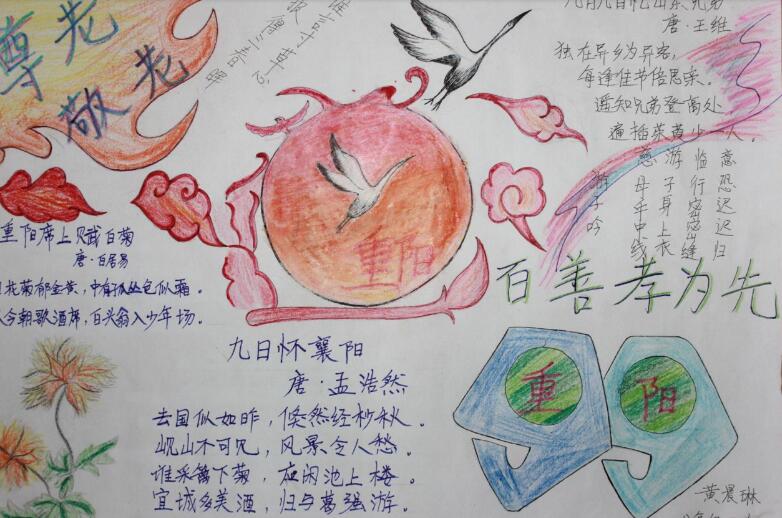 尊老
敬老
谁言寸草心
三春晖
九月九日忆山东兄弟
唐·王维
独在异乡为异客，
每逢佳节倍思亲。
遥知兄弟登高处，
遍插茱萸少一人。
游子吟
慈母手中线
游子身上衣
临行密密缝
意恐迟迟归
重阳
百善孝为先
重阳席上赋白菊
唐·白居易
花菊郁金黄，中有孤丛色似霜。
今朝歌酒席，白头翁入少年场。
九日怀襄阳
唐·孟浩然
去国似如昨，倏然经杪秋。
岘山不可见，风景令人愁。
谁采篱下菊，应闲池上楼。
宜城多美酒，归与葛强游。
重 阳
黄晨琳